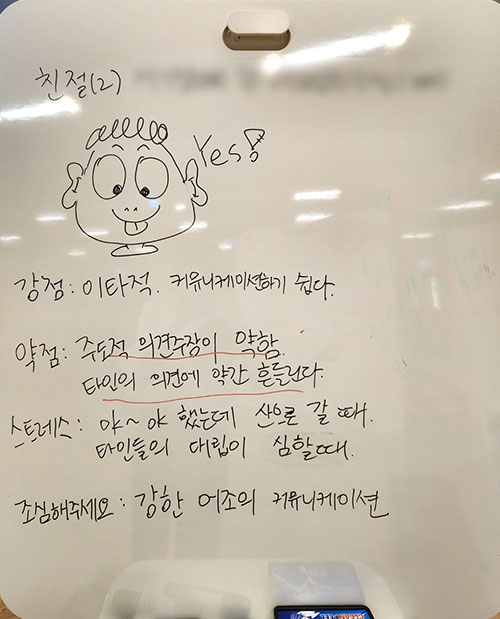 친절(2)
Yes!
강점: 이타적. 커뮤니케이션하기 쉽다.
약점: 주도적 의견주장이 약함.
타인의 의견에 약간 흔들린다.
스트레스: 야~야 했는데 산으로 갈 때.
타인들의 대립이 심할때.
조심해주세요: 강한 어조의 커뮤니케이션